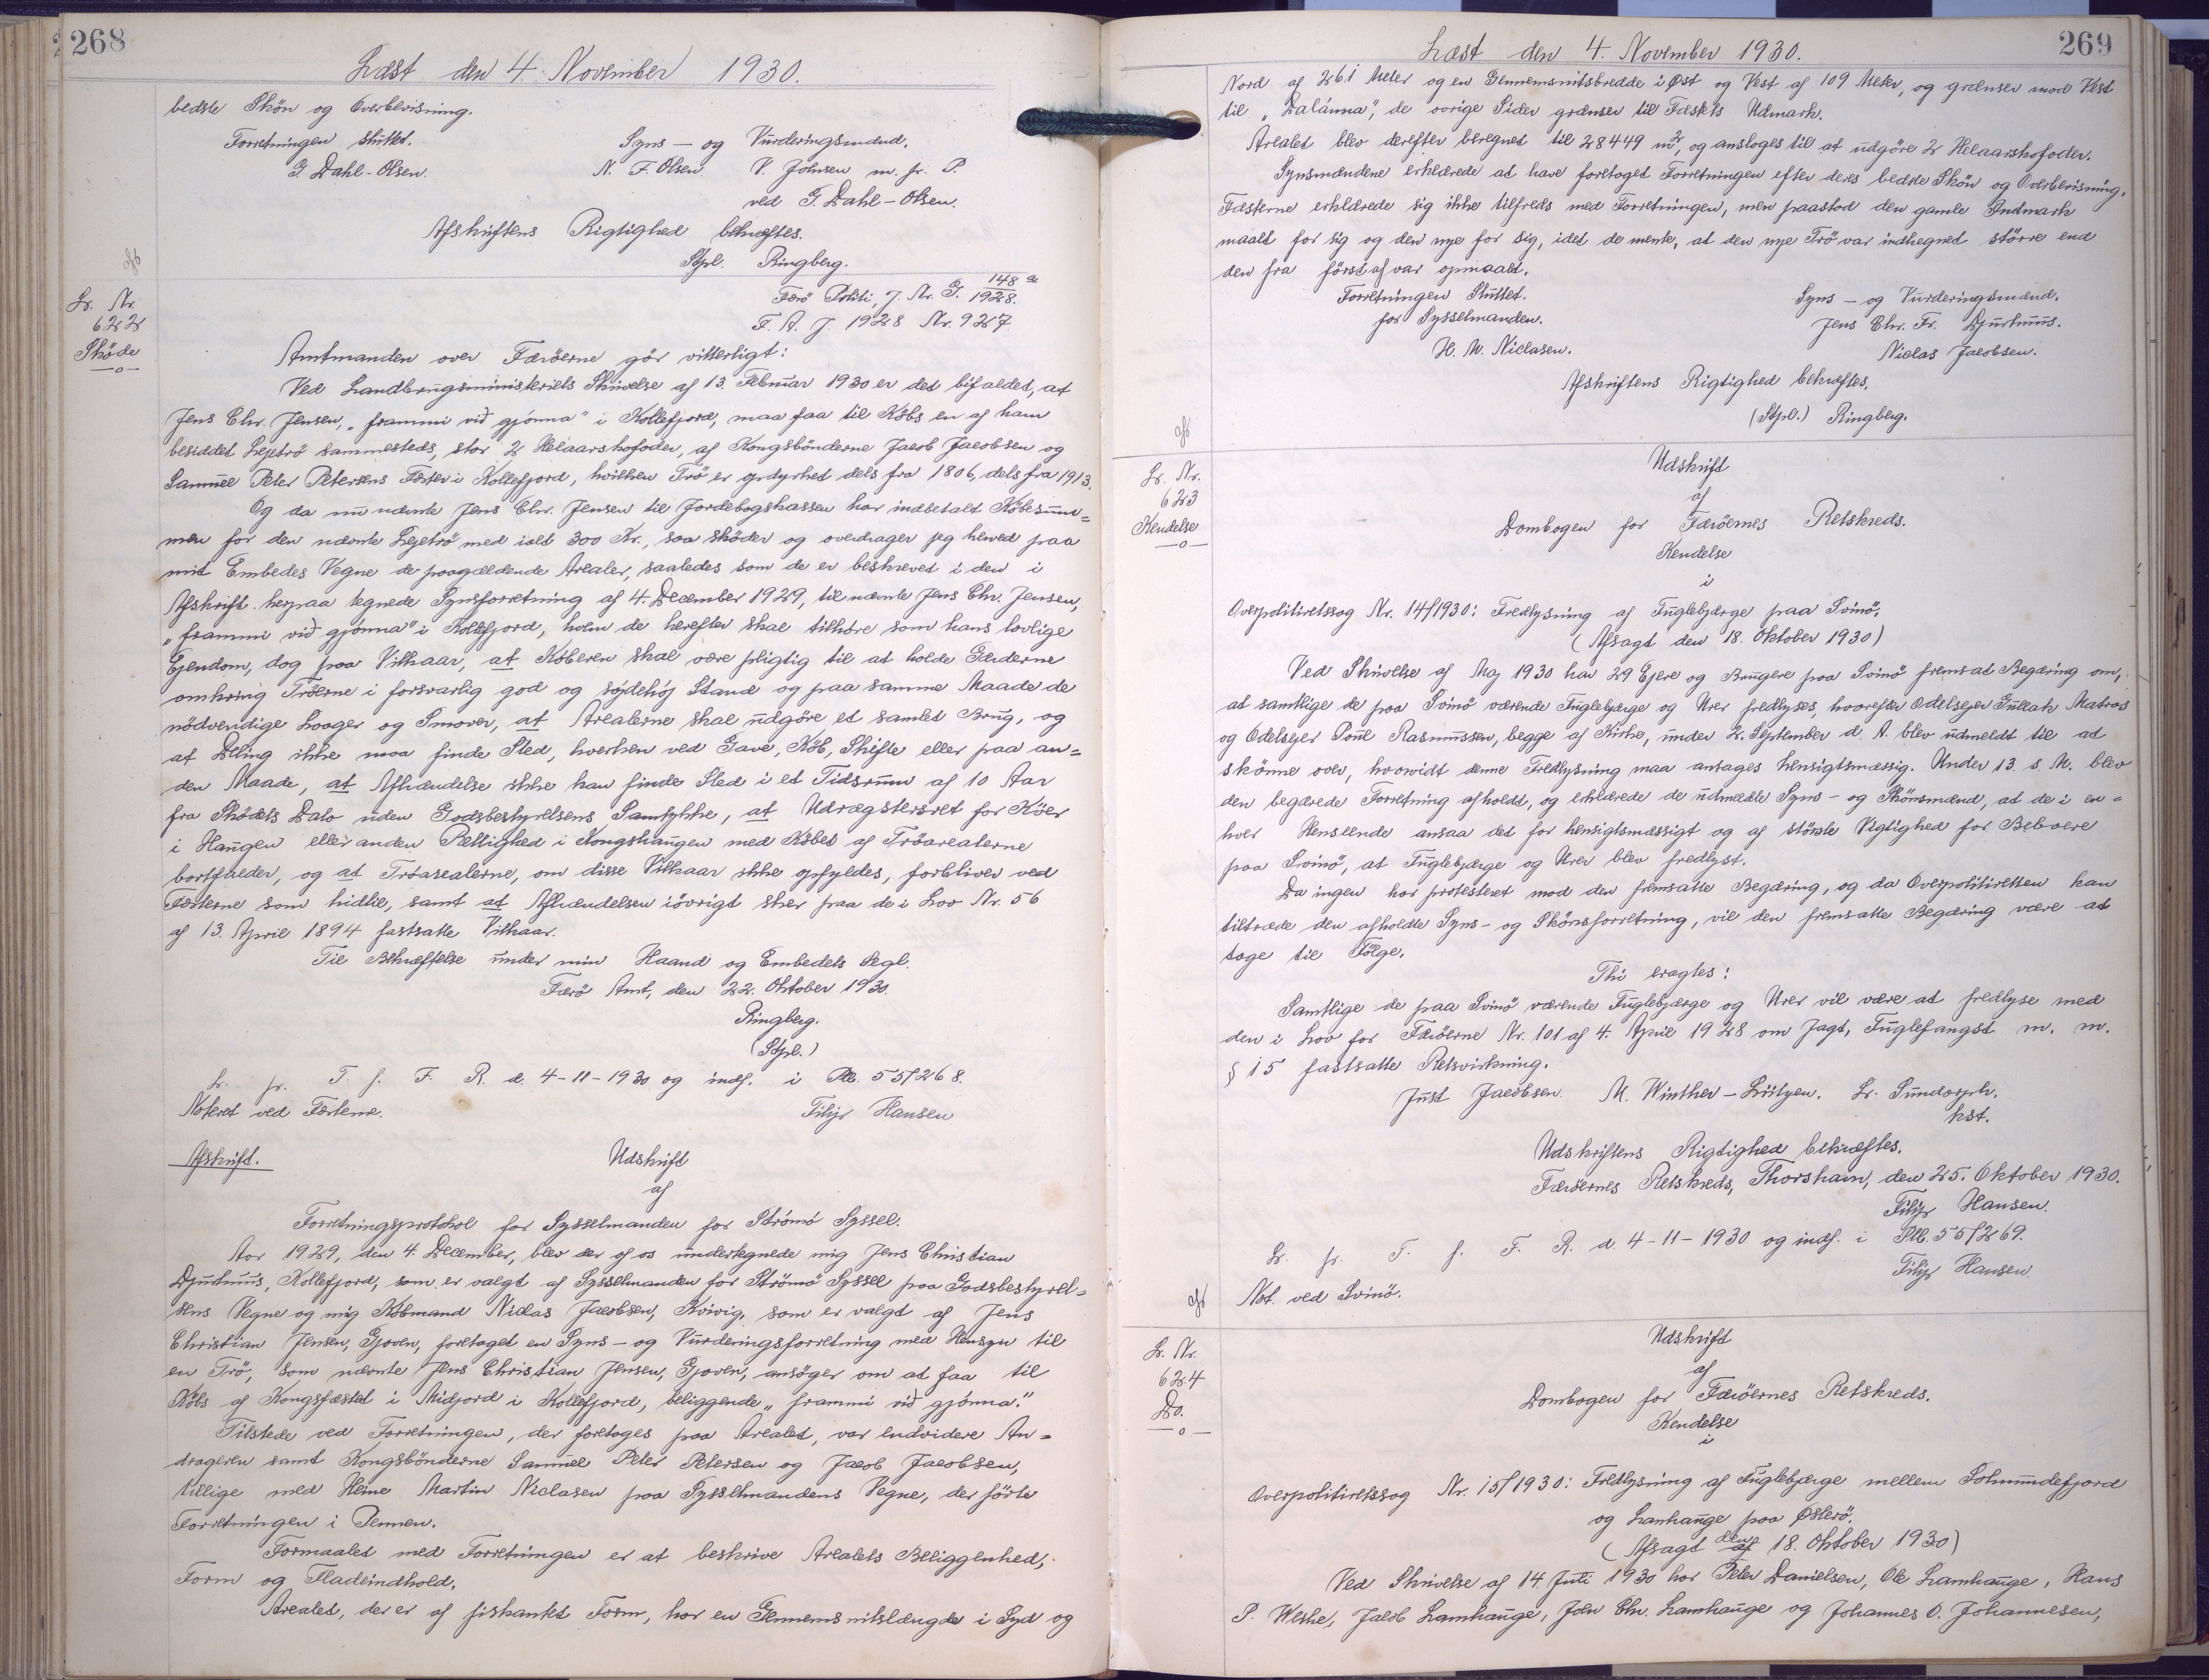 268
Læst den 4. November 1930.
bedste Skön og Overbevisning.
Forretningen sluttet.
Syns - og Vurderingsmænd.
G. Dahl-Olsen.
N. F. Olsen V. Johnsen m. f. P.
ved G. Dahl-Olsen.
Afskriftens Rigtighed bekræftes.
Stpl. Ringberg.
Lb. Nr.
622
Sköde
Færö Politi, J. Nr. G. 148/1928. a
F. A. J. 1928 Nr. 927.
Amtmanden over Færöerne gör vitterligt:
Ved Landbrugsministeriets Skrivelse af 13. Februar 1930 er det bifaldet, at
Jens Chr. Jensen, „frammi við gjónna" i Kollefjord, maa faa til Købs en af ham
besiddet Lejetrö sammesteds, stor 2 Helaarskofoder, af Kongsbönderne Jacob Jacobsen og
Samuel Peter Petersens Fæster i Kollefjord, hvilken Trö er opdyrket dels fra 1806, dels fra 1913.
Og da nu nævnte Jens Chr. Jensen til Jordebogskassen har indbetalt Købesum=
men for den nævnte Lejetrö med ialt 300 Kr., saa sköder og overdrager jeg herved paa
mit Embedes Vegne de paagældende Arealer, saaledes som de er beskrevet i den i
Afskrift herpaa tegnede Synsforretning af 4. December 1929, til nævnte Jens Chr. Jensen,
„frammi við gjónna" i Kollefjord, hvem de herefter skal tilhöre som hans lovlige
Ejendom, dog paa Vilkaar, at Køberen skal være pligtig til at holde Gærderne
omkring Tröerne i forsvarlig god og söjdehöj Stand og paa samme Maade de
nödvendige Laager og Smover, at Arealerne skal udgöre et samlet Brug, og
at Deling ikke maa finde Sted, hverken ved Gave, Køb, Skifte eller paa an=
den Maade, at Afhændelse ikke kan finde Sted i et Tidsrum af 10 Aar
fra Sködets Dato uden Godsbestyrelsens Samtykke, at Udrægstersret for Köer
i Haugen eller anden Rettighed i Kongshaugen med Købet af Tröarealerne
bortfalder, og at Tröarealerne, om disse Vilkaar ikke opfyldes, forbliver ved
Fæsterne som hidtil, samt at Afhændelsen iövrigt sker paa de i Lov Nr. 56
af 13. April 1894 fastsatte Vilkaar.
Til Bekræftelse under min Haand og Embedets Segl.
Færö Amt, den 22. Oktober 1930.
Ringberg.
(Stpl.)
Lb. fr. T. f. F. R. d. 4-11-1930 og indf. i Ptb. 55/268.
Noteret ved Fæsterne.
Filip Hansen
Afskrift.
Udskrift
af
Forretningsprotokol for Sysselmanden for Strömö Syssel.
Aar 1929, den 4. December, blev der af os undertegnede mig Jens Christian
Djurhuus, Kollefjord, som er valgt af Sysselmanden for Strömö Syssel paa Godsbestyrel=
sens Vegne og mig Købmand Niclas Jacobsen, Kvivig, som er valgt af Jens
Christian Jensen, Gjoven, foretaget en Syns- og Vurderingsforretning med Hensyn til
en Trö, som nævnte Jens Christian Jensen, Gjoven, ansöger om at faa til
Købs af Kongsfæstet i Midjord i Kollefjord, beliggende „frammi við gjónna."
Tilstede ved Forretningen, der foretoges paa Arealet, var endvidere An=
drageren samt Kongsbönderne Samuel Peter Petersen og Jacob Jacobsen,
tillige med Heine Martin Niclasen paa Sysselmandens Vegne, der förte
Forretningen i Pennen.
Formaalet med Forretningen er at beskrive Arealets Beliggenhed,
Form og Fladeindhold.
Arealet, der er af firkantet Form, har en Gennemsnitslængde i Syd og
269
Læst den 4. November 1930.
Nord af 261 Meter og en Gennemsnitsbredde i Øst og Vest af 109 Meter, og grænser mod Vest
til „Dalánna", de övrige Sider grænser til Fæstets Udmark.
Arealet blev derefter beregnet til 28449 m², og ansloges til at udgöre 2 Helaarskofoder.
Synsmændene erklærede at have foretaget Forretningen efter deres bedste Skön og Overbevisning.
Fæsterne erklærede sig ikke tilfreds med Forretningen, men paastod den gamle Indmark
maalt for sig og den nye for sig, idet de mente, at den nye Trö var indhegnet större end
den fra först af var opmaalt.
Forretningen Sluttet.
for Sysselmanden.
H. M. Niclasen.
Syns - og Vurderingsmænd.
Jens Chr. Fr. Djurhuus.
Niclas Jacobsen.
Afskriftens Rigtighed bekræftes.
(Stpl.) Ringberg.
Lb. Nr.
623
Kendelse
Udskrift
af
Dombogen for Færöernes Retskreds.
Kendelse
i
Overpolitiretssag Nr. 14/1930: Fredlysning af Fuglebjærge paa Svinö.
(Afsagt den 18. Oktober 1930)
Ved Skrivelse af Maj 1930 har 29 Ejere og Brugere paa Svinö fremsat Begæring om,
at samtlige de paa Svinö værende Fuglebjærge og Urer fredlyses, hvorefter Odelsejer Gullak Matras
og Odelsejer Poul Rasmussen, begge af Kirke, under 2. September d. A. blev udmeldt til at
skönne over, hvorvidt denne Fredlysning maa antages hensigtsmæssig. Under 13. s. M. blev
den begærede Forretning afholdt, og erklærede de udmeldte Syns- og Skönsmænd, at de i en=
hver Henseende ansaa det for hensigtsmæssigt og af störste Vigtighed for Beboere
paa Svinö, at Fuglebjærge og Urer blev fredlyst.
Da ingen har protesteret mod den fremsatte Begæring, og da Overpolitiretten kan
tiltræde den afholdte Syns- og Skönsforretning, vil den fremsatte Begæring være at
tage til Fölge.
Thi eragtes:
Samtlige de paa Svinö værende Fuglebjærge og Urer vil være at fredlyse med
den i Lov for Færöerne Nr. 101 af 4. April 1928 om Jagt, Fuglefangst m. m.
§ 15 fastsatte Retsvirkning.
Just Jacobsen. M. Winther-Lützen. Lr. Sundorph.
kst.
Udskriftens Rigtighed bekræftes.
Færöernes Retskreds, Thorshavn, den 25. Oktober 1930.
Filip Hansen.
Lb. fr. T. f. F. R. d. 4-11-1930 og indf. i Ptb. 55/269.
Filip Hansen
Not. ved Svinö.
Lb. Nr.
624
Do.
Udskrift
af
Dombogen for Færöernes Retskreds.
Kendelse
i
Overpolitiretssag Nr. 15/1930: Fredlysning af Fuglebjærge mellem Solmundefjord
og Lamhauge paa Østerö.
(Afsagt den 18. Oktober 1930)
Ved Skrivelse af 14. Juli 1930 har Peter Danielsen, Ole Lamhauge, Hans
P. Weihe, Jacob Lamhauge, John Chr. Lamhauge og Johannes O. Johannesen,